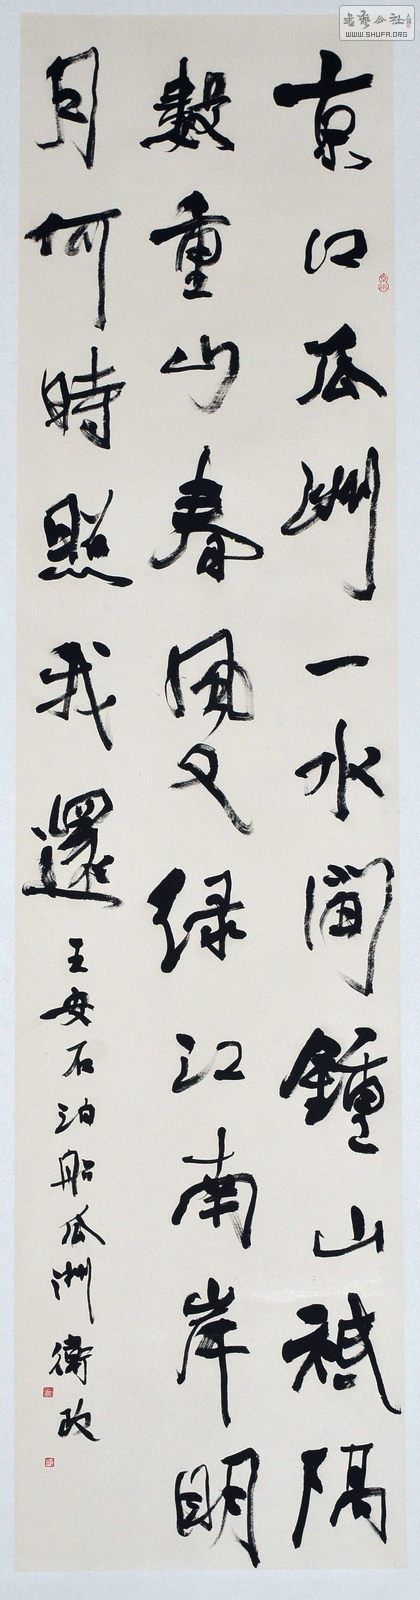 京江瓜洲一水间鍾山祗隔
數重山春風又绿江南岸明
月何時照我還
王安石泊船瓜洲 衛政
書藝公社
WWW.SHUFA.ORG